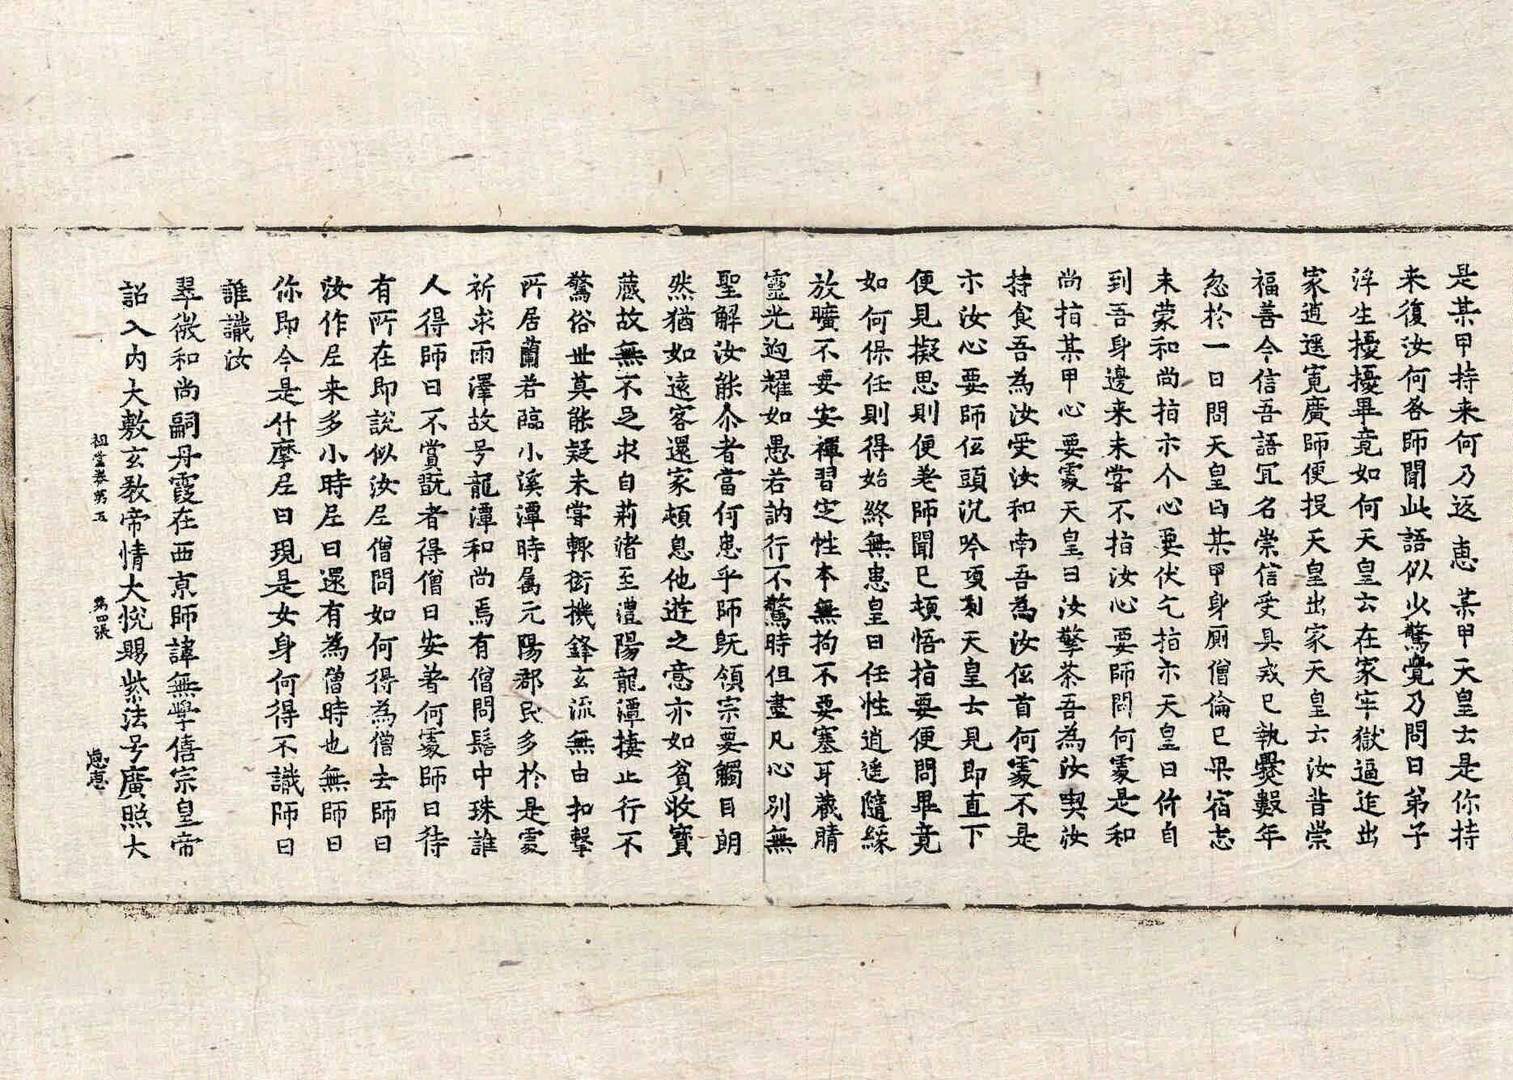 是某甲持来何乃返恵某甲天皇云是你持
来復汝何咎師聞此語似少驚覺乃問曰弟子
浮生擾擾畢竟如何天皇云在家牢獄逼迮出
家逍遥寛廣師便投天皇出家天皇云汝昔崇
福善今信吾語冝名崇信受具戒已執爨數年
忽於一日問天皇曰某甲身廁僧倫已果宿志
未蒙和尚指示个心要伏乞指示天皇曰你自
到吾身邊来未甞不指汝心要師問何處是和
尚指某甲心要處天皇曰汝擎茶吾為汝喫汝
持食吾為汝受汝和南吾為汝伍首何處不是
示汝心要師伍頭沉吟項刻天皇云見即直下
便見擬思則便老師聞已頓悟指要便問畢竟
如何保任則得始終無患皇曰任性逍遥隨緣
放曠不要安禪習定性本無拘不要塞耳蔵睛
靈光逈耀如愚若訥行不驚時但盡凡心別無
聖解汝能尒者當何患乎師既領宗要觸目朗
然猶如遠客還家頓息他遊之意亦如貧收寶
蔵故無不足求自荊渚至澧陽龍潭捿止行不
驚俗世莫能疑未甞輙衒機鋒玄流無由扣擊
所居蘭若臨小溪潭時属元陽郡民多於是處
祈求雨澤故号龍潭和尚焉有僧問髻中珠誰
人得師曰不賞翫者得僧曰安著何處師曰待
有所在即説似汝尼僧問如何得為僧去師曰
汝作尼来多小時尼曰還有為僧時也無師曰
你即今是什摩尼曰現是女身何得不識師曰
誰識汝
翠微和尚嗣丹霞在西京師諱無學僖宗皇帝
詔入内大敷玄教帝情大悅賜紫法号廣照大
祖堂卷第五
第四張